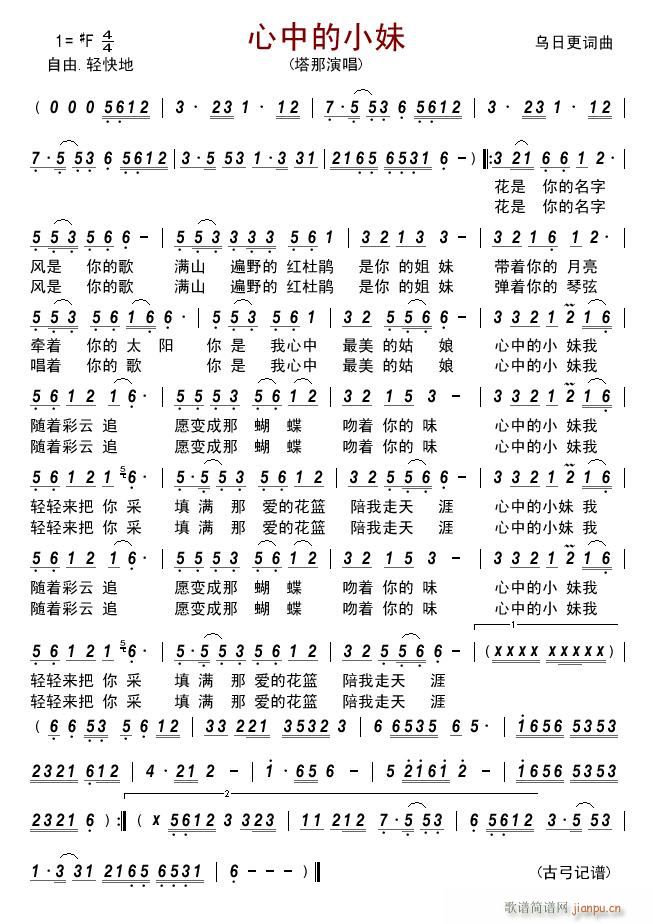 心中的小妹
1= #F 4/4
乌日更词曲
自由.轻快地
(塔那演唱)
( 0 0 0 5612 | 3· 23 1· 12 | 7·5 53 6 5612 | 3· 23 1· 12 |
7·5 53 6 5612 | 3·5 53 1·3 31 | 2165 6531 6 – ) ‖: 3 21 6 6 1 2· |
花是 你的名字
花是 你的名字
5 53 5 6 6 – | 5 53 3 33 5 6 1 | 3 2 1 3 3 – | 3 2 1 6 1 2· |
风是 你的歌 满山 遍野的 红杜鹃 是你 的姐 妹 带着你的 月亮
风是 你的歌 满山 遍野的 红杜鹃 是你 的姐 妹 弹着你的 琴弦
5 53 5 6 1 6 6· | 5·5 53 5 6 1 | 3 2 5 5 6 5 – | 3 3 2 1 2 1 6 |
牵着 你的 太 阳 你 是 我心中 最美 的姑 娘 心中的小 妹我
唱着 你的 歌 你 是 我心中 最美 的姑 娘 心中的小 妹我
5 6 1 2 1 6· | 5 5 5 3 5 6 1 2 | 3 2 1 5 3 – | 3 3 2 1 2 1 6 |
随着彩云 追 愿变成那 蝴 蝶 吻着 你的 味 心中的小 妹我
随着彩云 追 愿变成那 蝴 蝶 吻着 你的 味 心中的小 妹我
5 6 1 2 1 5 6· | 5·5 5 3 5 6 1 2 | 3 3 5 5 6 6· | 3 3 2 1 2 1 6 |
轻轻来把 你 采 填 满 那 爱的花篮 陪我走天 涯 心中的小妹 我
轻轻来把 你 采 填 满 那 爱的花篮 陪我走天 涯 心中的小妹 我
5 6 1 2 1 6· | 5 5 5 3 5 6 1 2 | 3 2 1 5 3 – | 3 3 2 1 2 1 6 |
随着彩云 追 愿变成那 蝴 蝶 吻着 你的 味 心中的小 妹我
随着彩云 追 愿变成那 蝴 蝶 吻着 你的 味 心中的小 妹我
1
5 6 1 2 1 5 6· | 5·5 5 3 5 6 1 2 | 3 3 5 5 6 6· | (xxxx xxxxx) |
轻轻来把 你 采 填 满 那 爱的花篮 陪我走天 涯
轻轻来把 你 采 填 满 那 爱的花篮 陪我走天 涯
( 6 6 53 5 6 12 | 33 221 3532 3 | 6 6535 6 5· | 1656 5353 |
2321 612 | 4· 21 2 – | 5 2161 2 – | 1656 5353 |
2
2321 6 ) :‖ ( x 5612 3 323 | 11 212 7·5 53 | 6 5612 3·5 53 |
1·3 31 2165 6531 | 6 – – – ‖
(古弓记谱)
歌谱简谱网
jianpu.cn